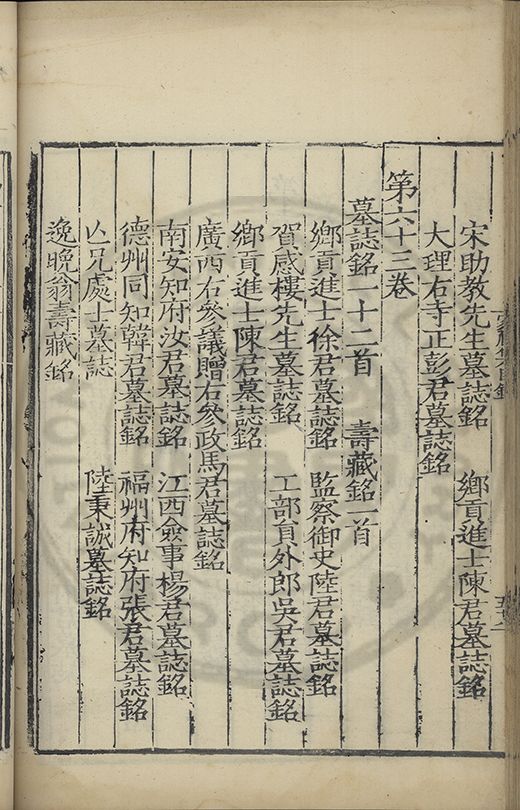 宋助教先生墓誌銘　鄉貢進士陳君墓誌銘
大理右寺正彭君墓誌銘
第六十三卷
墓誌銘一十二首　壽藏銘一首
鄉貢進士徐君墓誌銘　監察御史陸君墓誌銘
賀感樓先生墓誌銘　工部員外郎吳君墓誌銘
鄉貢進士陳君墓誌銘
廣西右參議贈右參政馬君墓誌銘
南安知府汝君墓誌銘　江西僉事楊君墓誌銘
德州同知韓君墓誌銘　福州府知府張君墓誌銘
亾兄處士墓誌　陸秉誠墓誌銘
逸晚翁壽藏銘